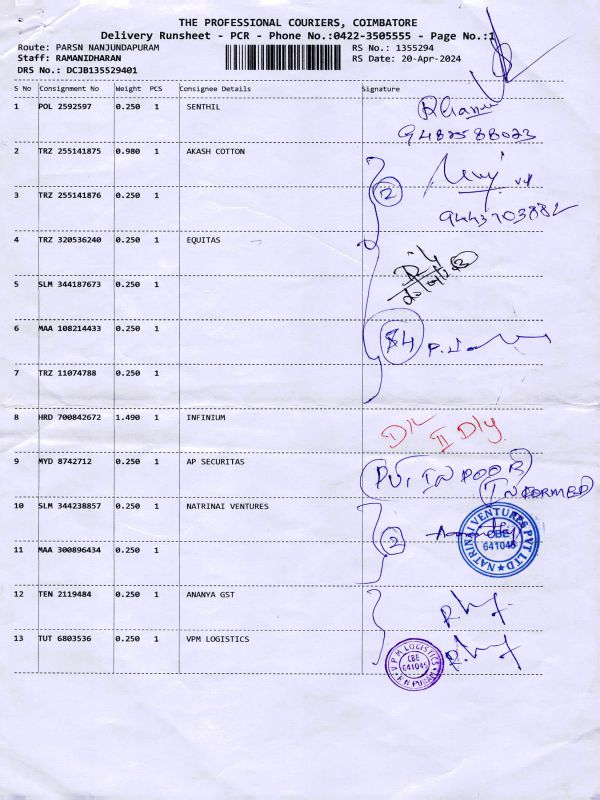 THE PROFESSIONAL COURIERS, COIMBATORE
Delivery Runsheet - PCR - Phone No.:0422-3505555 - Page No.:1
Route: PARSN NANJUNDAPURAM RS No.: 1355294
Staff: RAMANIDHARAN RS Date: 20-Apr-2024
DRS No.: DCJB135529401
S No Consignment No Weight PCS Consignee Details Signature
1 POL 2592597 0.250 1 SENTHIL
2 TRZ 255141875 0.980 1 AKASH COTTON
3 TRZ 255141876 0.250 1
2
4 TRZ 320536240 0.250 1 EQUITAS
5 SLM 344187673 0.250 1
6 MAA 108214433 0.250 1
7 TRZ 11074788 0.250 1
8 HRD 700842672 1.490 1 INFINIUM
II Dly
9 MYD 8742712 0.250 1 AP SECURITAS
PUT IN DOOR
INFORMED
10 SLM 344238857 0.250 1 NATRINAI VENTURES
NATRINAI VENTURES PVT LTD
CBE
641045
2
11 MAA 300896434 0.250 1
12 TEN 2119484 0.250 1 ANANYA GST
13 TUT 6803536 0.250 1 VPM LOGISTICS
V P M LOGISTICS
CBE
641045